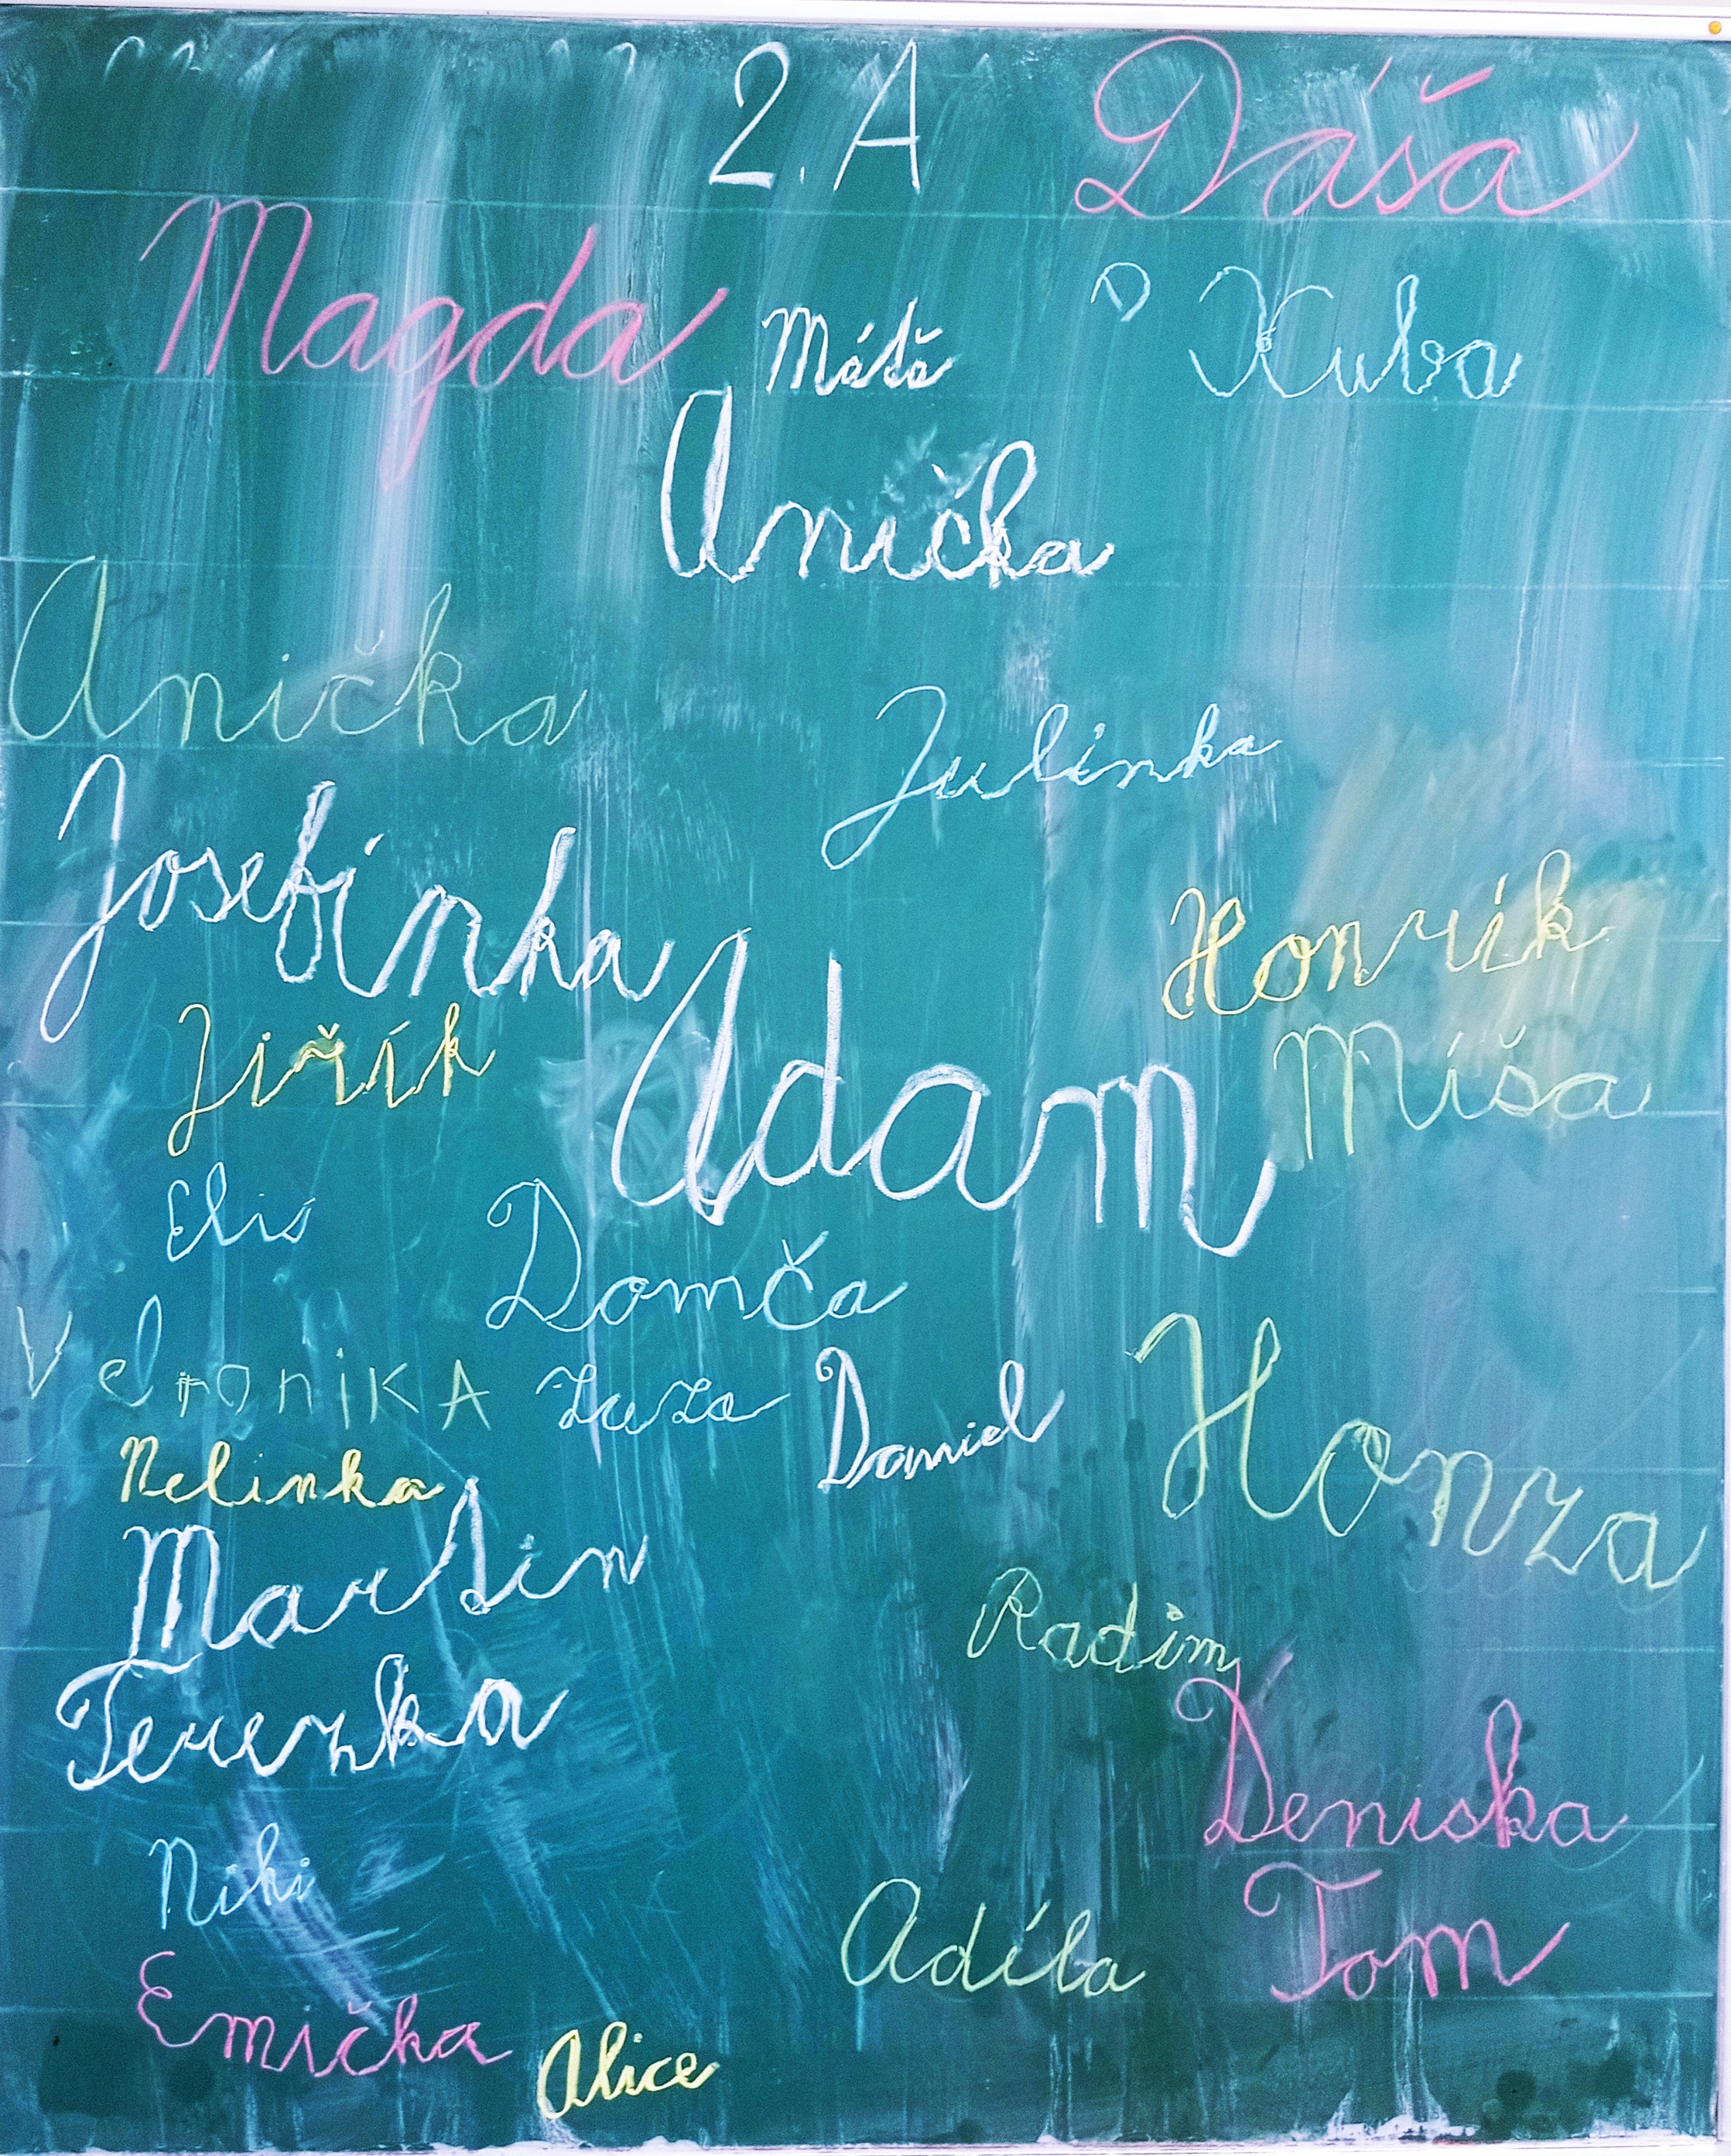 2. A
Dáša
Magda
Máťa
Kuba
Anička
Anička
Julinka
Josefinka
Honzík
Jiřík
Adam
Míša
Domča
Veronika
Zuza
Daniel
Honza
Nelinka
Martin
Radim
Terezka
Deniska
Niki
Adéla
Tom
Emička
Alice